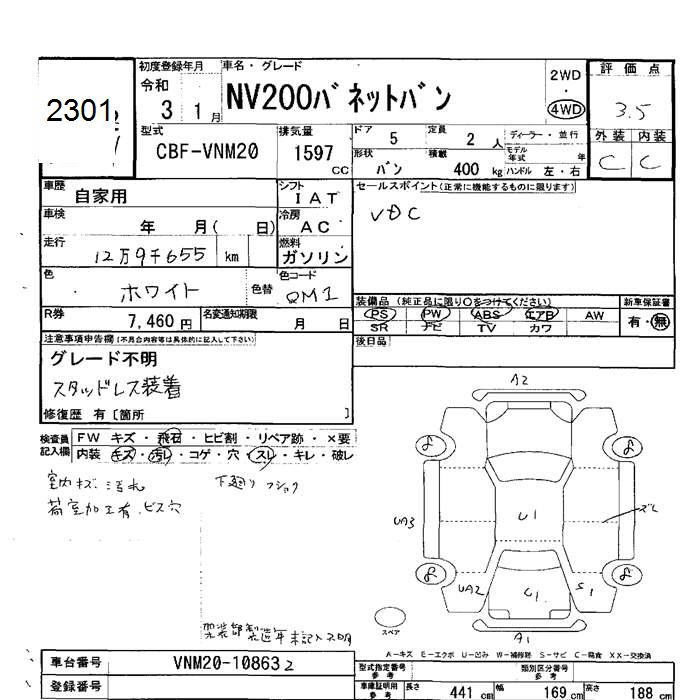 初度登録年月 車名・グレード
令和 3 1月 NV200バネットバン
2WD
・
4WD
評価点
3.5
外装 内装
C C
2301
型式 排気量 ドア 5 定員 2人 ディーラー・並行
CBF-VNM20 1597 CC 形状 バン 積載 400 kg モデル年式 年 ハンドル 左・右
車歴 自家用 シフト IAT セールスポイント(正常に機能するものに限ります)
VDC
車検 年 月( 日) 冷房 AC
走行 12万9千655 km 燃料 ガソリン
色 ホワイト 色替 色コード QM1
装備品(純正品に限り○をつけてください) 新車保証書
PS PW ABS エアB AW 有・無
SR ナビ TV カワ
R券 7,460円 名変通知期限 月 日
後日品
注意事項申告欄(不具合内容等は具体的に記入して下さい)
グレード不明
スタッドレス装着
修復歴 有〔箇所 〕
検査員記入欄 FW キズ・飛石・ヒビ割・リペア跡・×要
内装 キズ・汚レ・コゲ・穴・スレ・キレ・破レ
室内キズ汚れ 下廻りフショク
荷室加工有.ビス穴
A2
8 8
UA3 U1 ズレ
8 8
UA2 U1 S1
A1
スペア
A-キズ E-エクボ U-凹み W-補修跡 S-サビ C-腐食 XX-交換済
車台番号 VNM20-108632
登録番号
型式指定番号 参考 類別区分番号 参考
車庫証明用 参考 長さ 441 cm 幅 169 cm 高さ 188 cm